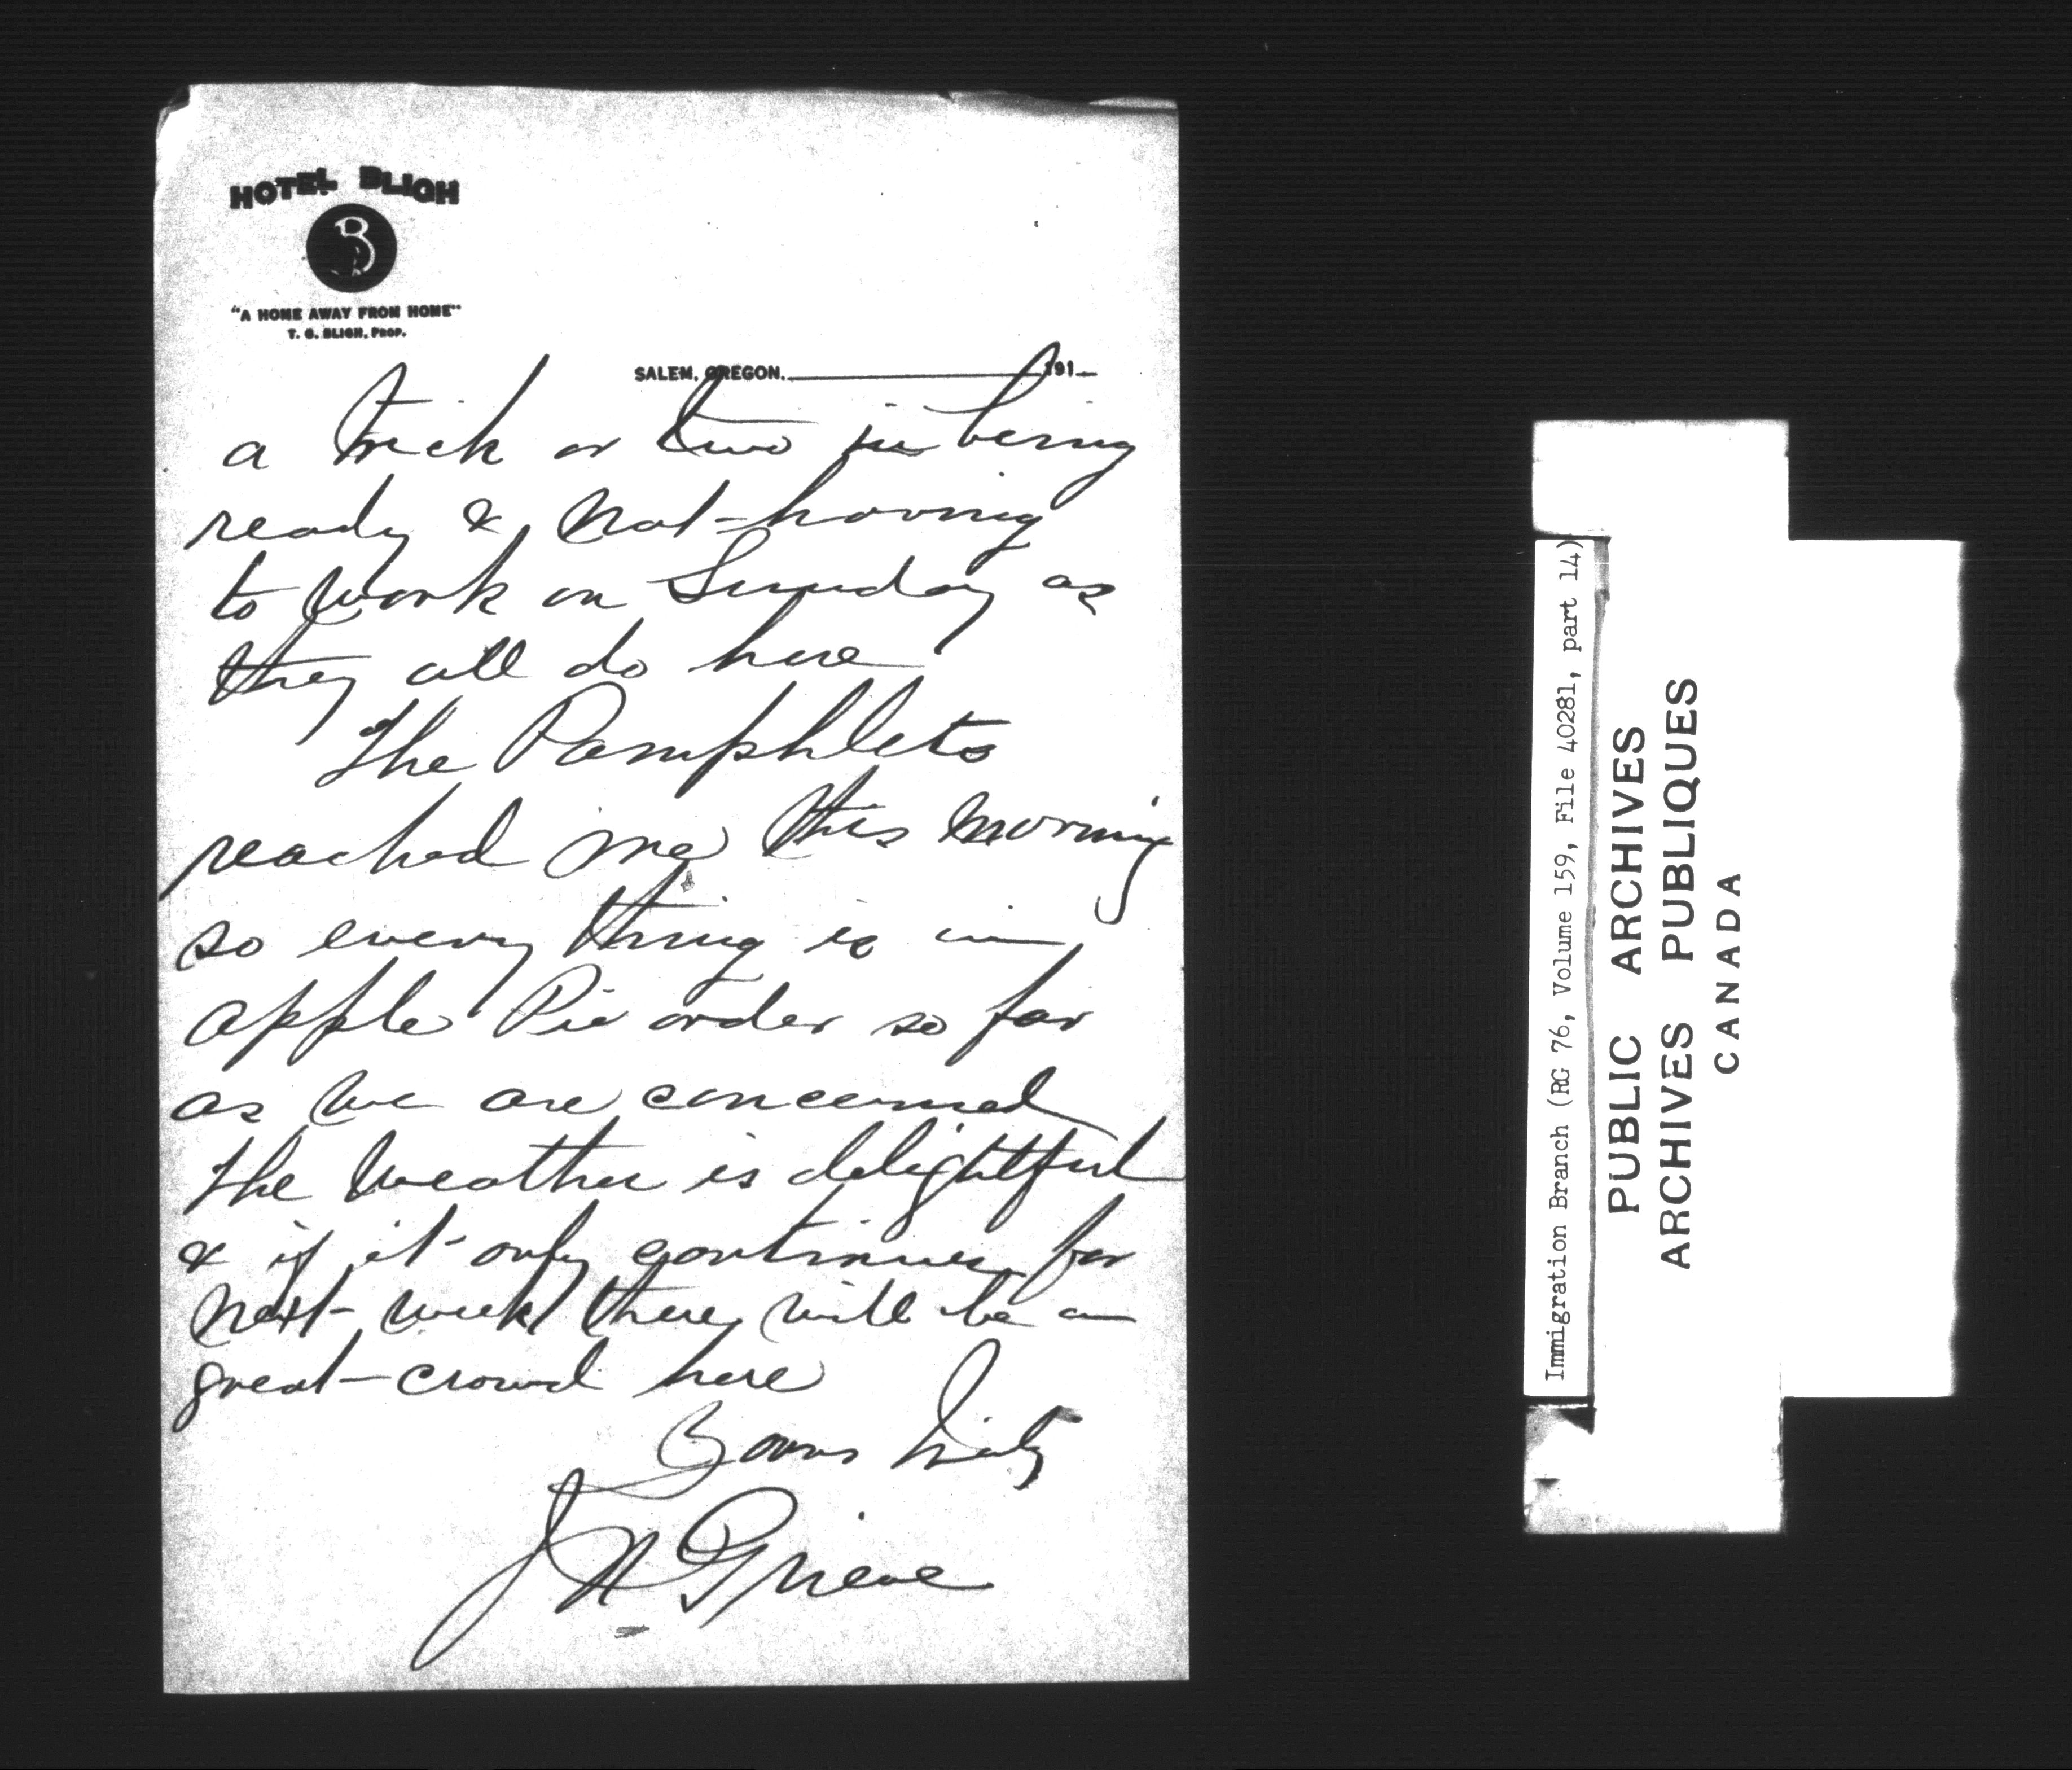 HOTEL BLIGH
B
"A HOME AWAY FROM HOME"
T. G. BLIGH, PROP.
SALEM, OREGON. 191
a trick or two in being
ready & not having
to work on Sunday as
they all do here
The Pamphlets
reached me this morning
so every thing is in
apple Pie order so far
as we are concerned
The weather is delightful
& if it only continues for
next week there will be a
great crowd here
Yours truly
J N Grieve
Immigration Branch (RG 76, Volume 159, File 40281, part 14)
PUBLIC ARCHIVES
ARCHIVES PUBLIQUES
CANADA